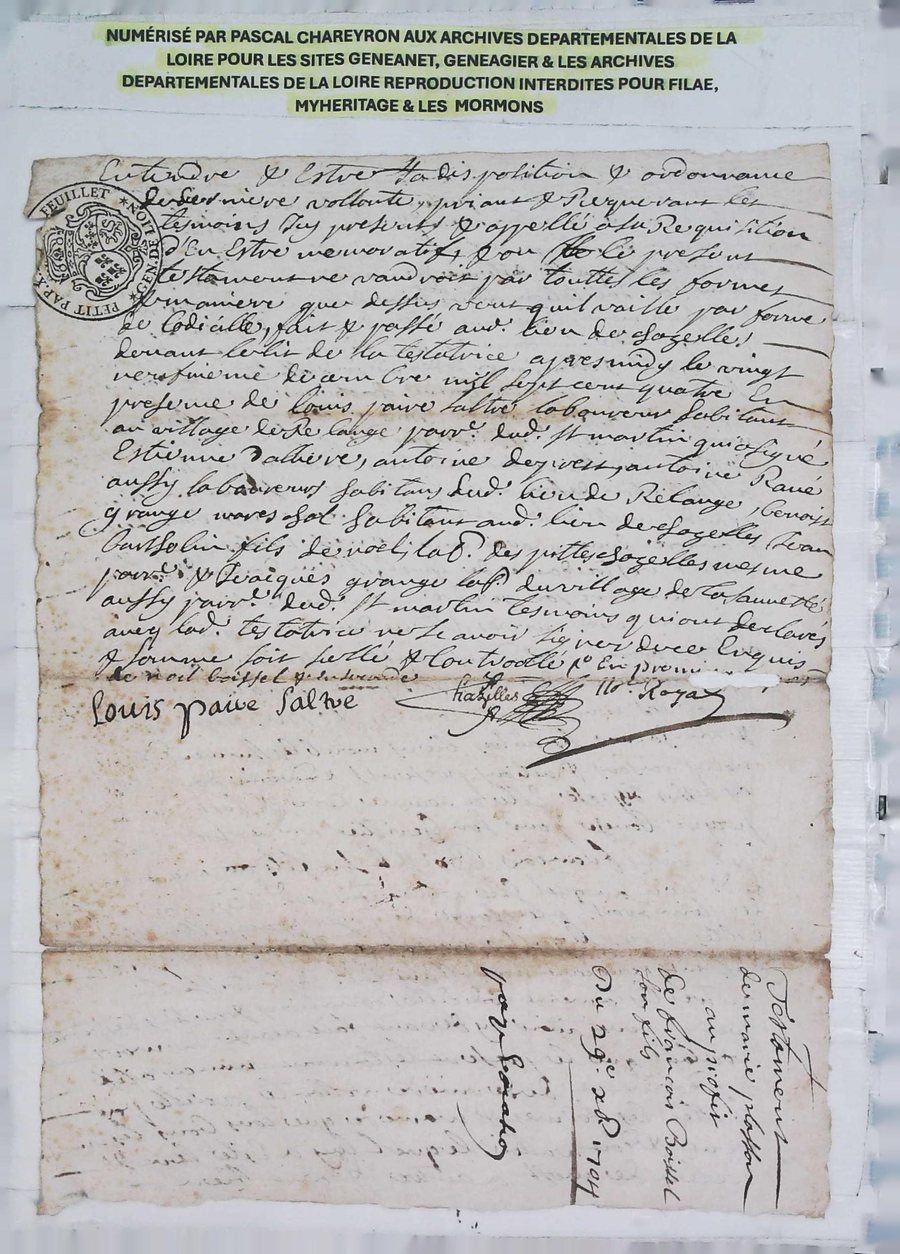 NUMÉRISÉ PAR PASCAL CHAREYRON AUX ARCHIVES DEPARTEMENTALES DE LA
LOIRE POUR LES SITES GENEANET, GENEAGIER & LES ARCHIVES
DEPARTEMENTALES DE LA LOIRE REPRODUCTION INTERDITES POUR FILAE,
MYHERITAGE & LES MORMONS
FEUILLET * NOT. ET * GEN. DE LION
PETIT PAP.
Entendre & Estre sa disposition & ordonnance
de derniere vollonte, priant & Recquerant les
tesmoins sus presents & appellé a sa Requisition
D'En Estre memoratifs, & ou le present
testament ne vaudroit par touttes les formes
& maniere que dessus veut quil vaille par forme
de Codicille, fait & passé aud. lieu de Sazelles
devant le lit de la testatrice apres midy le vingt
neufieme decembre mil sept cent quatre En
presence de Louis paire Saltre laboureur habitant
au village de Relange parr.e dud. st martin qui a signé
Estienne antoine antoine Rané
aussy laboureurs habitans dud. lieu de Relange, benoist
grange mareschal habitant aud. lieu de Sazelles Jean
fils de noel lab. des mesme
parr.e & Jacques grange lab. du village de la Sauvetté
aussy parr.e dud. st martin tesmoins qui ont declarés
avecq lad. testatrice ne scavoir signer de ce Enquis
& Comme soit scellé & Controollé
de noel boissel
Louis paire Saltre
Royal
Testament
de marie plasson
au profit
de françois Boissel
son fils
Du 29e xbre 1704